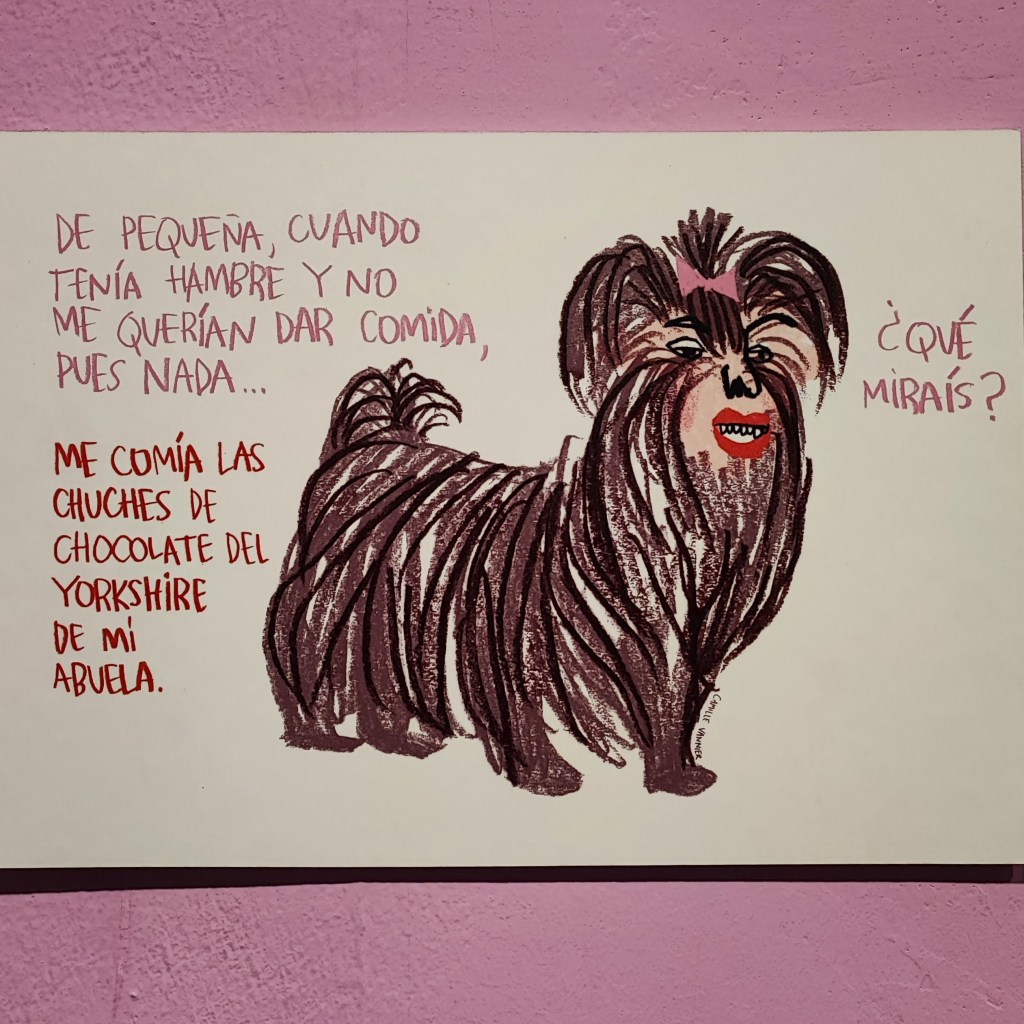 DE PEQUEÑA, CUANDO
TENÍA HAMBRE Y NO
ME QUERÍAN DAR COMIDA,
PUES NADA...
ME COMÍA LAS
CHUCHES DE
CHOCOLATE DEL
YORKSHIRE
DE MI
ABUELA.
¿QUÉ
MIRAÍS?
CAMILLE VANNIER